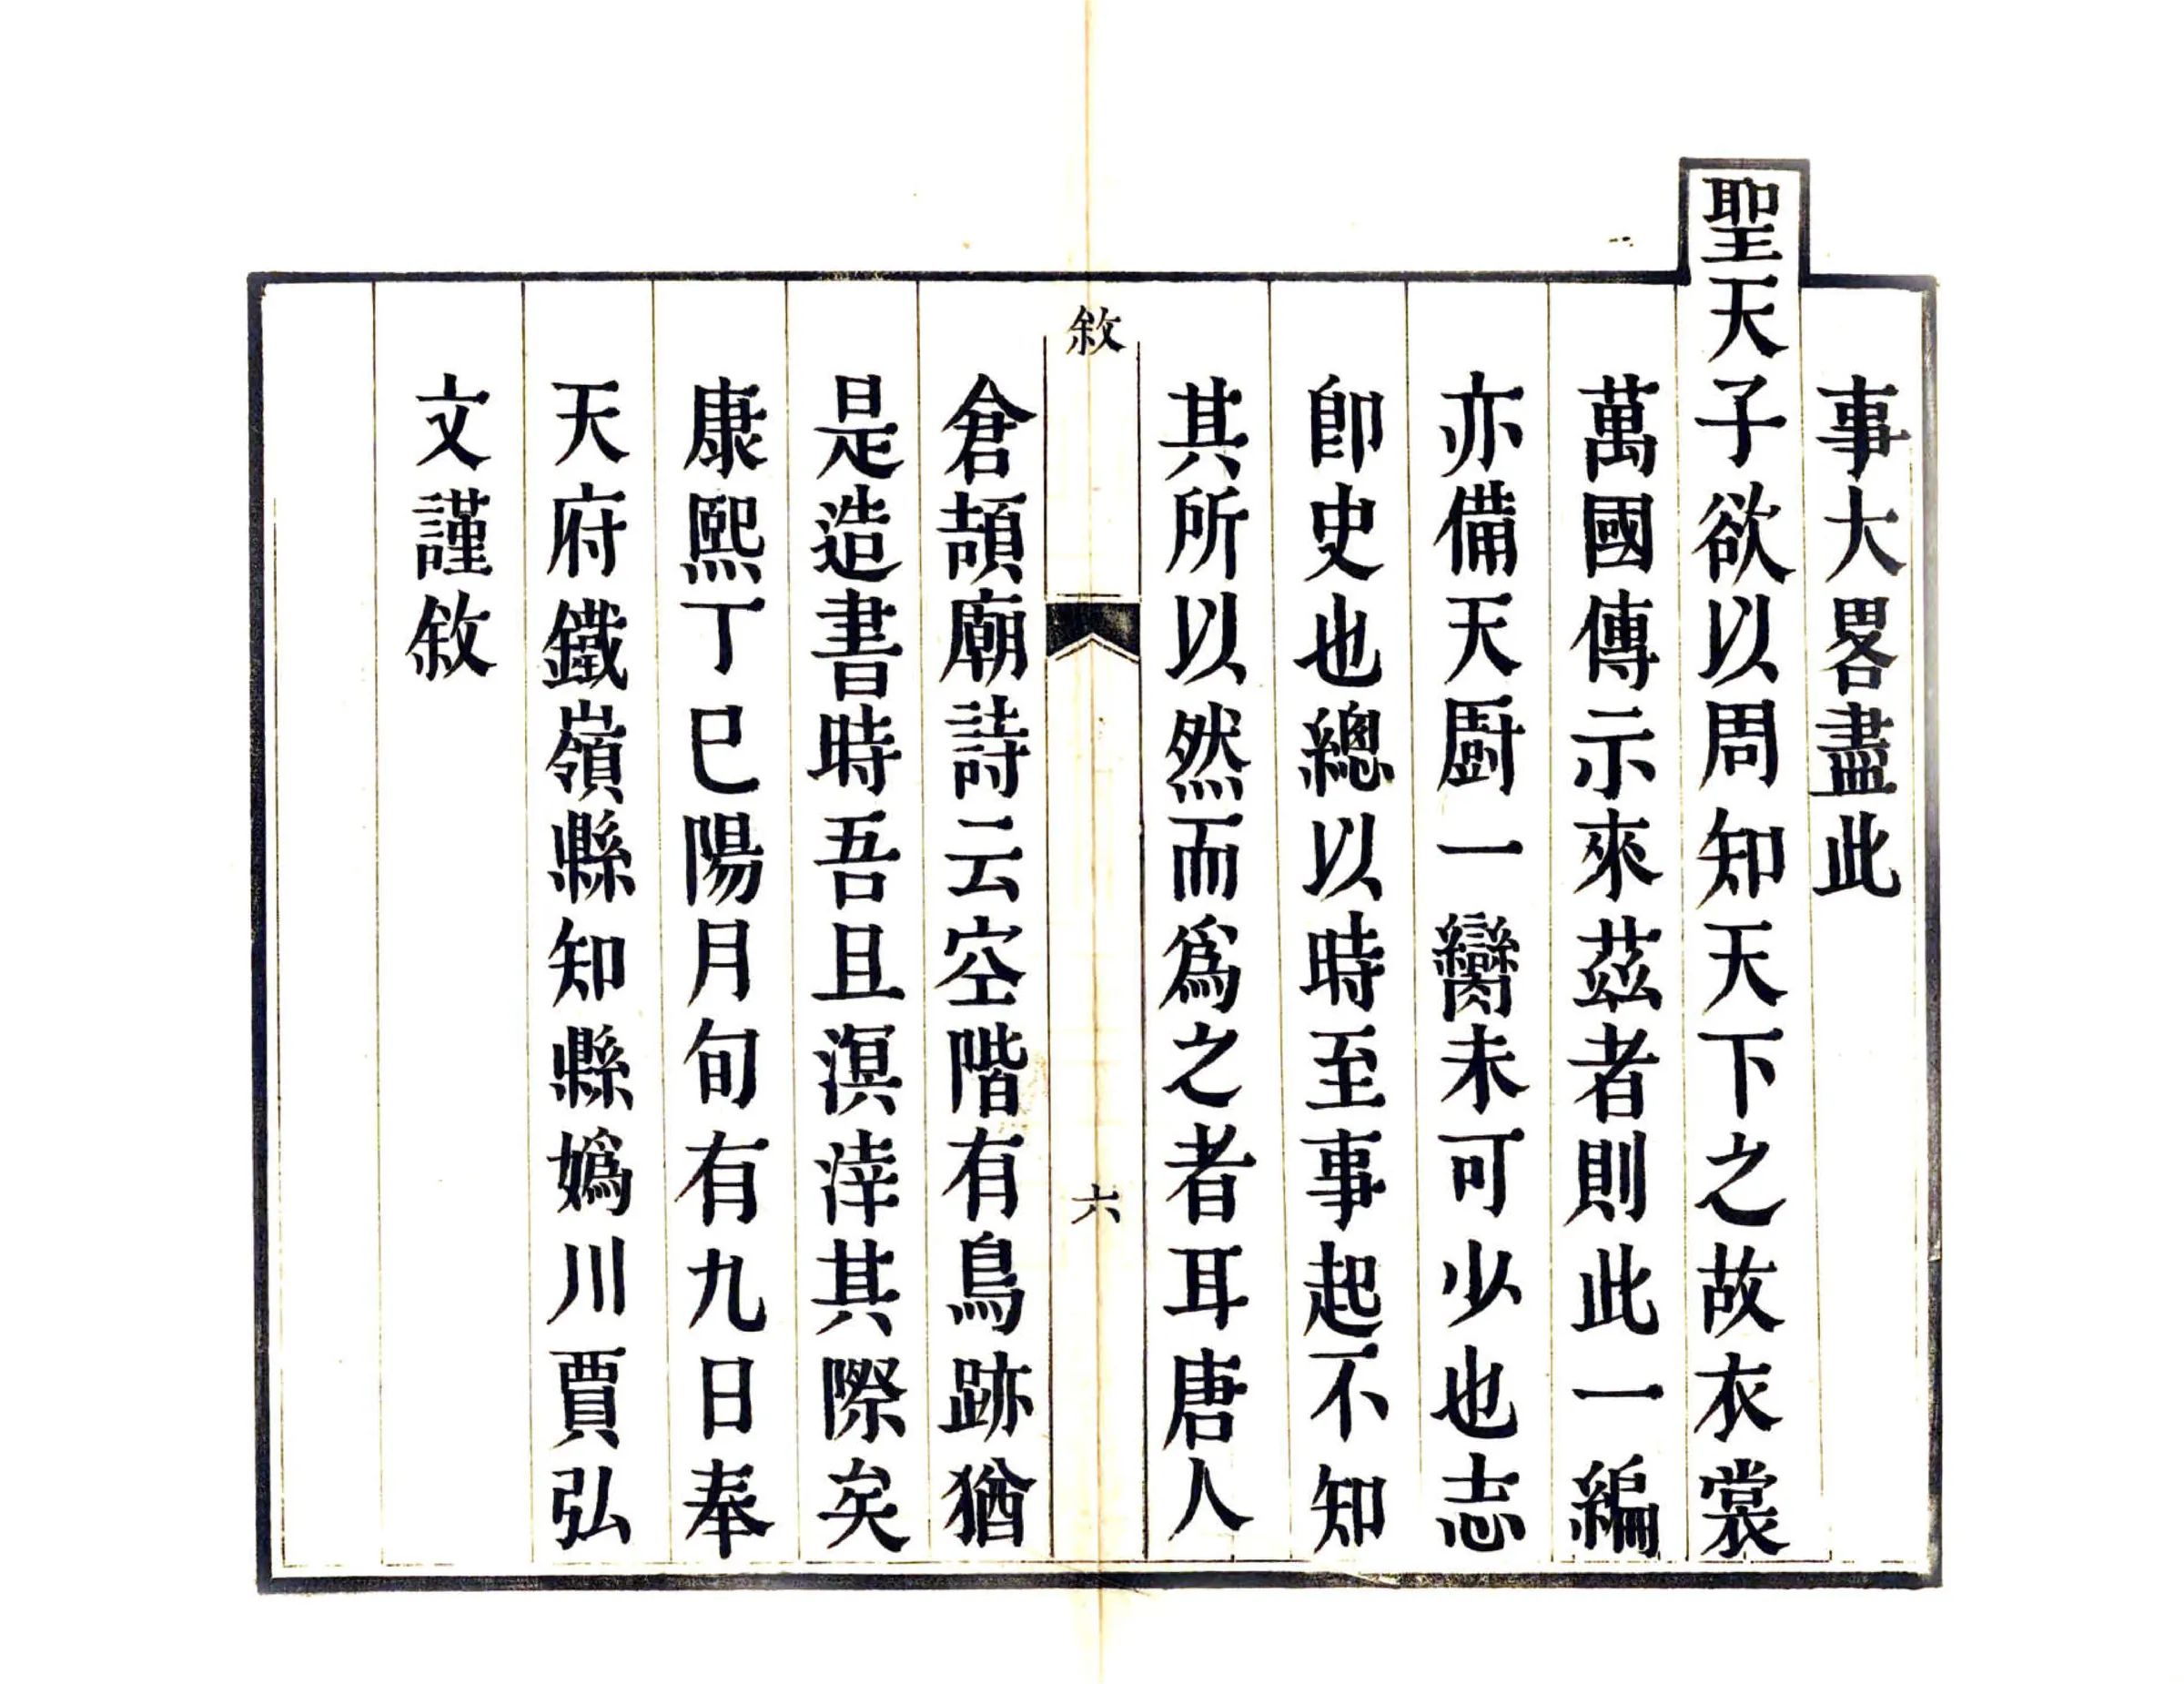 事大畧盡此
聖天子欲以周知天下之故衣裳
萬國傳示來茲者則此一編
亦備天厨一臠未可少也志
卽史也總以時至事起不知
其所以然而爲之者耳唐人
敘
六
倉頡廟詩云空階有鳥跡猶
是造書時吾且溟涬其際矣
康熙丁巳陽月旬有九日奉
天府鐵嶺縣知縣嬀川賈弘
文謹敘